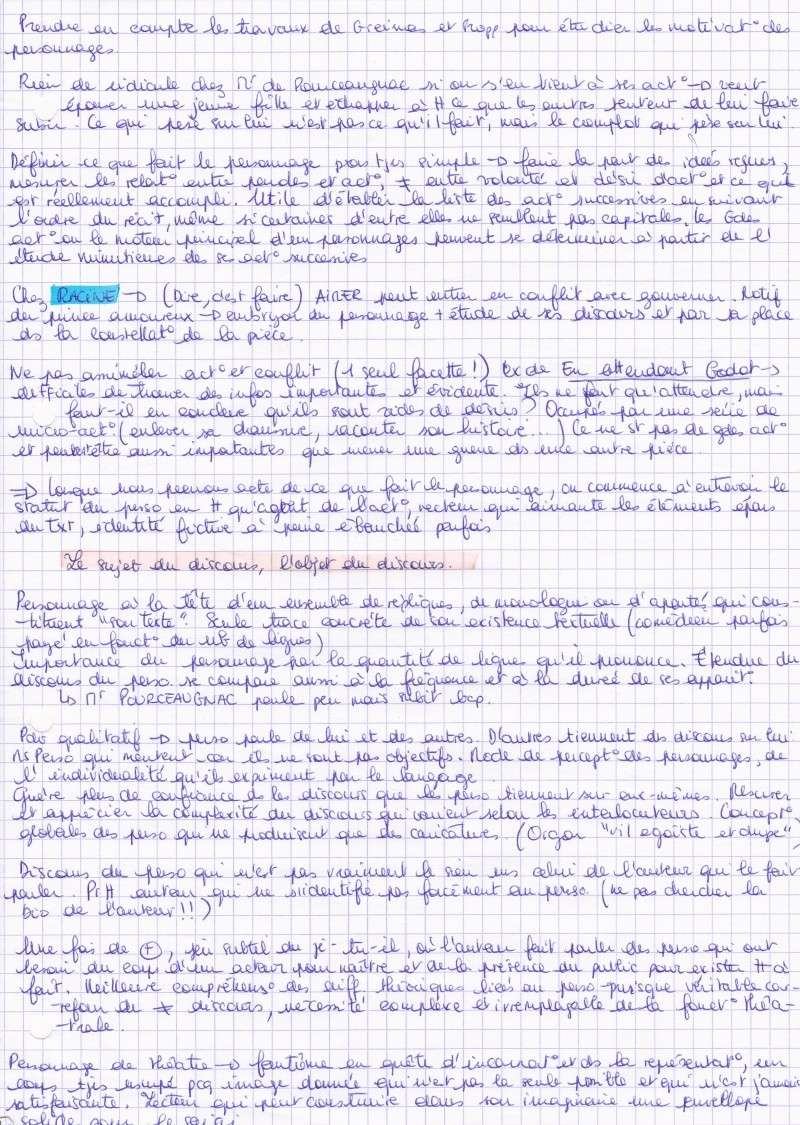 Prendre en compte les travaux de Greimas et Propp pour étudier les motivat° des
personnages.
Rien de ridicule chez Mr de Pourceaugnac si on s'en tient à ses act° → veut
épouser une jeune fille et échapper à tt ce que les autres tentent de lui faire
subir. Ce qui pèse sur lui n'est pas ce qu'il fait, mais le complot qui pèse sur lui.
Définir ce que fait le personnage pas tjs simple → faire la part des idées reçues,
mesurer les relat° entre paroles et act°, ≠ entre volonté et désir d'act° et ce qui
est réellement accompli. Utile d'établir la liste des act° successives en suivant
l'ordre du récit, même si certaines d'entre elles ne semblent pas capitales. Les Gdes
act° ou le moteur principal d'un personnages peuvent se déterminer à partir de l'
étude minutieuse de ses act° successives
Chez RACINE → (Dire, c'est faire) AIMER peut entrer en conflit avec gouverner. Motif
du prince amoureux → embryon du personnage + étude de ses discours et par sa place
ds la constellat° de la pièce.
Ne pas assimiler act° et conflit (1 seul facette !) Ex de En attendant Godot →
difficiles de trouver des infos importantes et évidente. Ils ne font qu'attendre, mais
faut-il en conclure qu'ils sont vides de désirs ? Occupés par une série de
micro-act° (enlever sa chaussure, raconter son histoire...) Ce ne st pas de gdes act°
et peut être aussi importantes que mener une guerre ds une autre pièce.
⇒ Lorsque nous prenons acte de ce que fait le personnage, on commence à entrevoir le
statut du perso en tt qu'agent de l'act°, vecteur qui aimante les éléments épars
du txt, identité fictive à peine ébauchée parfois
Le sujet du discours, l'objet du discours.
Personnage à la tête d'un ensemble de répliques, de monologue ou d'apartés qui cons-
tituent "son texte". Seule trace concrète de son existence textuelle (comédien parfois
payé en fonct° du nb de lignes)
Importance du personnage par la quantité de lignes qu'il prononce. Étendue du
discours du perso. se compare aussi à la fréquence et à la durée de ses apparit°
↳ Mr POURCEAUGNAC parle peu mais subit bcp.
qualitatif → perso parle de lui et des autres. D'autres tiennent des discours sur lui
Ms Perso qui mentent car ils ne sont pas objectifs. Mode de percept° des personnages, de
l'individualité qu'ils expriment par le langage.
Guère plus de confiance ds les discours que les perso tiennent sur eux-mêmes. Mesurer
et apprécier la complexité du discours qui varient selon les interlocuteurs. Concept°
globales des perso qui ne produisent que des caricatures. (Orgon "vil egoïste et dupe")
Discours du perso qui n'est pas vraiment le sien ms celui de l'auteur qui le fait
parler. Ptt auteur qui ne s'identifie pas forcément au perso. (ne pas chercher la
bio de l'auteur !!)
Une fois de +, jeu subtil du je-tu-il, où l'auteur fait parler des perso qui ont
besoin du corps d'un acteur pour naître et de la présence du public pour exister tt à
fait. Meilleure compréhens° des diff théoriques liées au perso puisque véritable car-
refour de ≠ discours, nécessité complexe et irremplaçable de la fonct° théâ-
trale.
Personnage de théâtre → fantôme en quête d'incarnat° et ds la représentat°, un
corps tjs usurpé pcq image donnée qui n'est pas la seule possible et qui n'est jamais
satisfaisante. Lecteur qui peut construire dans son imaginaire une enveloppe
solide pour le